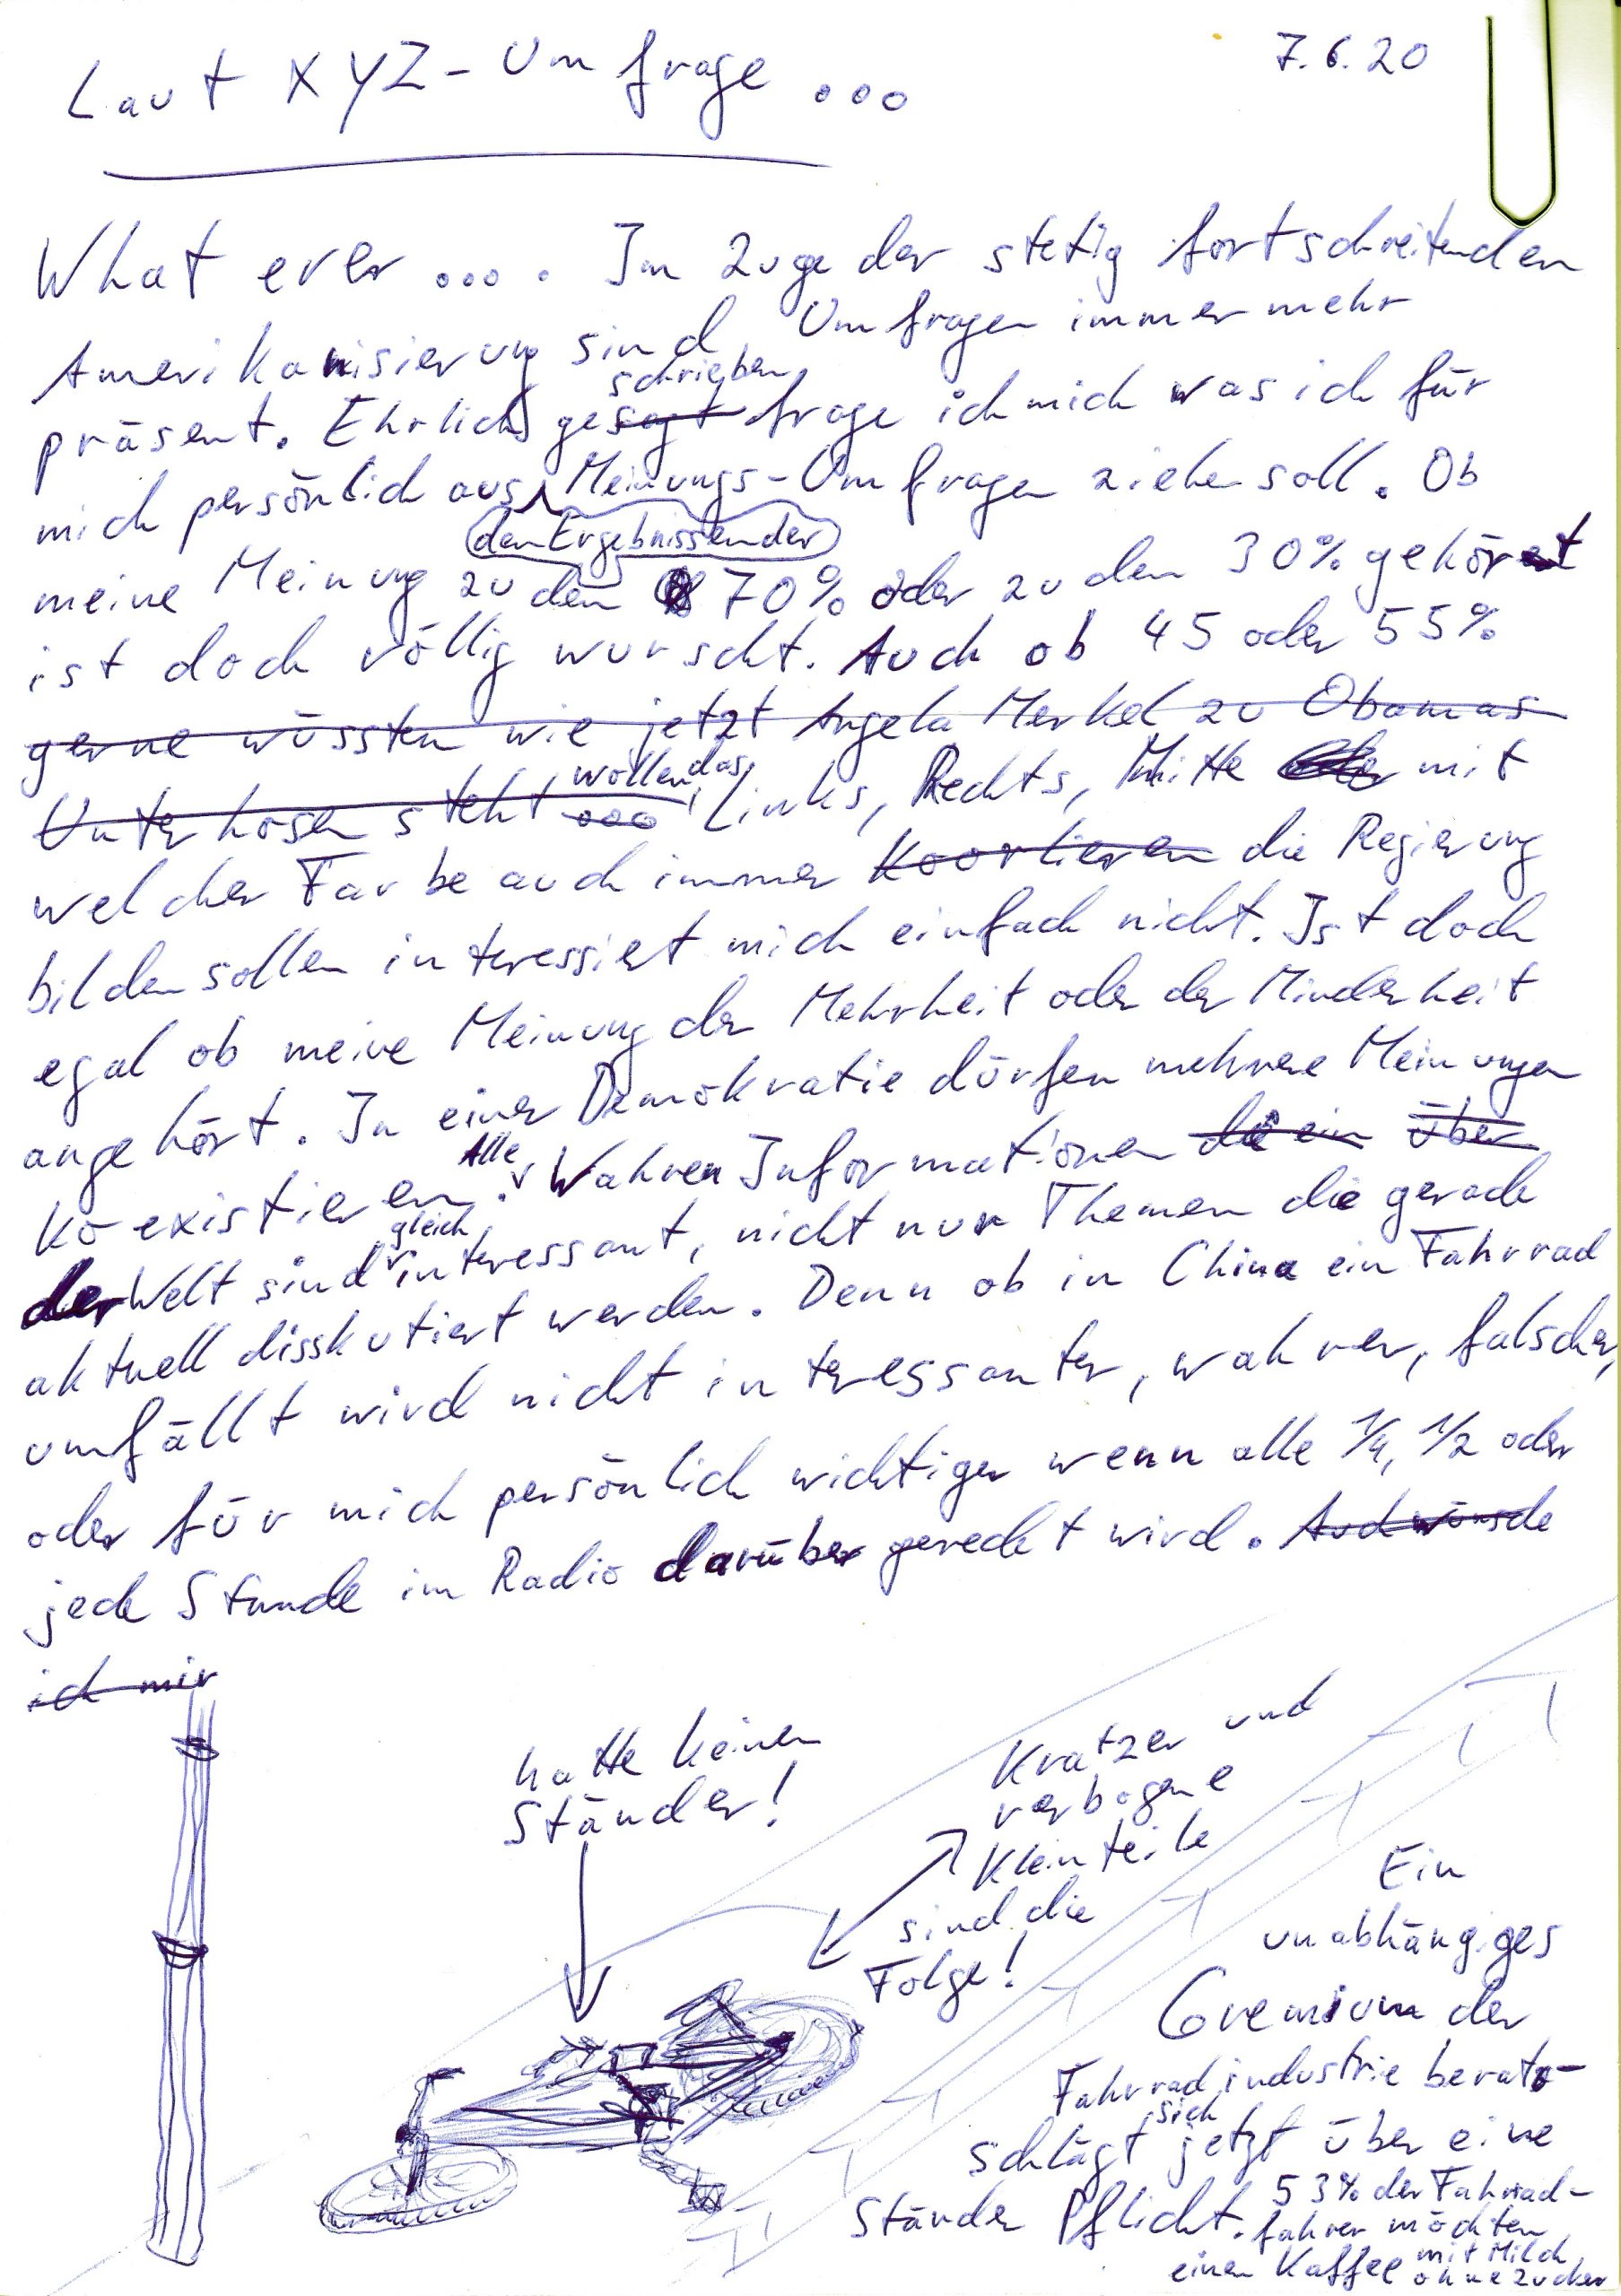 Laut XYZ-Umfrage ...
7.6.20
What ever .... Im Zuge der stetig fortschreitenden
Amerikanisierung sind Umfragen immer mehr
schrieben
präsent. Ehrlich gesagt frage ich mich was ich für
mich persönlich aus Meinungs-Umfragen ziehen soll. Ob
den Ergebnissen der
meine Meinung zu den 70% oder zu den 30% gehört
ist doch völlig wurscht. Auch ob 45 oder 55%
gerne wüssten wie jetzt Angela Merkel zu Obamas
wollen, das
Unterhosen steht ... Links, Rechts, Mitte oder mit
welcher Farbe auch immer koorlieren die Regierung
bilden sollen interessiert mich einfach nicht. Ist doch
egal ob meine Meinung der Mehrheit oder der Minderheit
angehört. In einer Demokratie dürfen mehrere Meinungen
Alle
koexistieren. Wahren Informationen die ein über
gleich
der Welt sind interessant, nicht nur Themen die gerade
aktuell disskutiert werden. Denn ob in China ein Fahrrad
umfällt wird nicht interessanter, wahrer, falscher,
oder für mich persönlich wichtiger wenn alle 1/4, 1/2 oder
jede Stunde im Radio darüber geredet wird. Auch würde
ich mir
hatte keinen
Ständer!
Kratzer und
verbogene
Kleinteile
sind die
Folge!
Ein
unabhängiges
Gremium der
Fahrradindustrie berat-
sich
schlägt jetzt über eine
Ständer Pflicht. 53% der Fahrrad-
fahrer möchten
einen Kaffee mit Milch
ohne Zucker